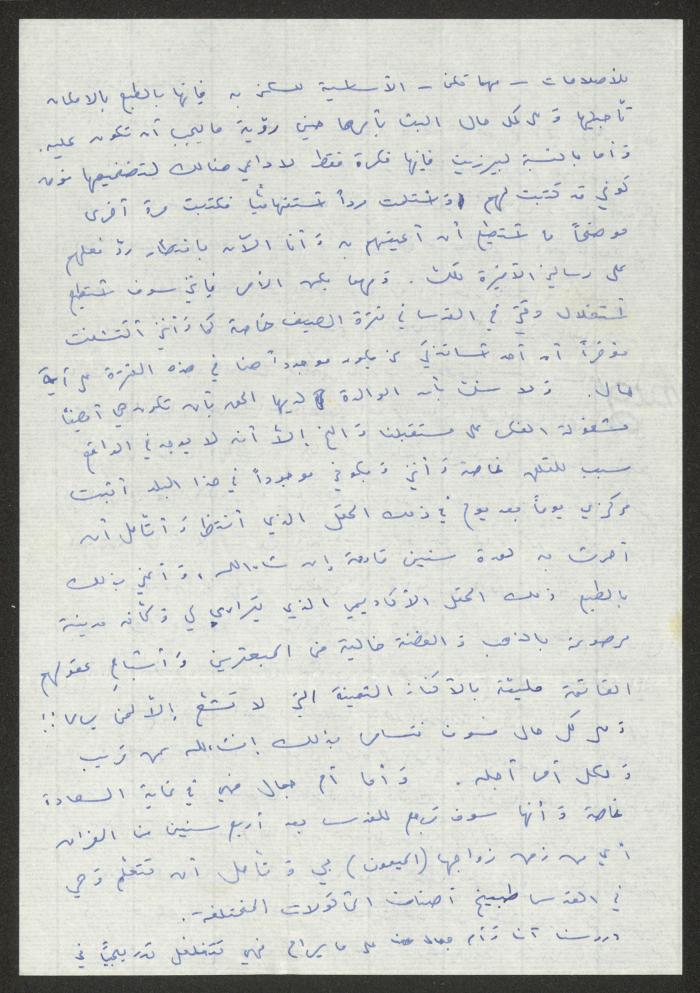 للأصلاحات - مهما تكن - الأساسية للسكن به فإنها بالطبع بالامكان
تأجيلها وعلى كل حال البت بأمرها حين رؤية ما يجب أن تكون عليه.
وأما بالنسبة لبيرزيت فإنها فكرة فقط لا داعي هنالك لتضخيمها
كوني قد كتبت لهم واستلمت رداً استفهامياً فكتبت مرة أخرى
موضحاً ما أستطيع أن أعينهم به وأنا الآن بانتظار رد فعلهم
على رسالتي الأخيرة تلك. ومهما يكن الأمر فإني سوف أستطيع
استغلال وقتي في القدس في فترة الصيف خاصة كما وأنني اكتشفت
مؤخراً أن أحد أساتذتي لن يكون موجوداً هنا في هذه الفترة على أية
حال. ولا شك بأن الوالدة لديها الحق بأن تكون هي أيضاً
مشغولة الفكر على مستقبلنا والخ إلا أنه لا يوجد في الواقع
سبب للقلق خاصة وأنني وبكوني موجوداً في هذا البلد أثبت
مركزي يوماً بعد يوم في ذلك الحقل الذي أنتظر وأتأمل أن
أحرث به لعدة سنين قادمة إن شاء الله، وأعني بذلك
بالطبع ذلك الحقل الأكاديمي الذي يتراءى لي وكأنه مدينة
مرصوصة بالذهب والفضة خالية من المبعثرين وأشباع عقولهم
الفاقعة مليئة بالأفكار الثمينة التي لا تشع إلا لمن يراها!!
وعلى كل حال فسوف نتسامر بذلك إنشاءلله عن قريب
ولكل أمر أجله. وأما أم جمال فهي في غاية السعادة
خاصة وأنها سوف ترجع للقدس بعد أربع سنين من الفراق
أي من زمن زواجها (الميمون) بي وتأمل أن تتعلم وهي
في القدس طبيخ أصناف المأكولات المختلفة.
دروسنا أنا وأم جمال على ما يرام فهي تتغلغل تدريجياً في